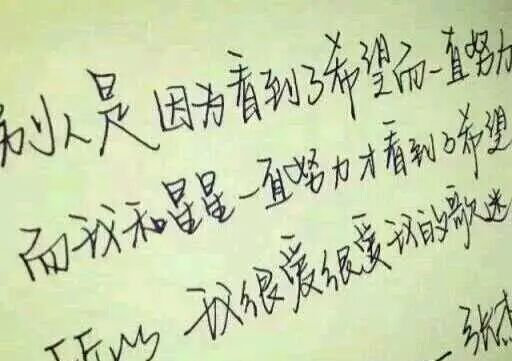 别人是因为看到了希望而一直努力
而我和星星一直努力才看到了希望
所以 我很爱很爱我的歌迷
—张杰